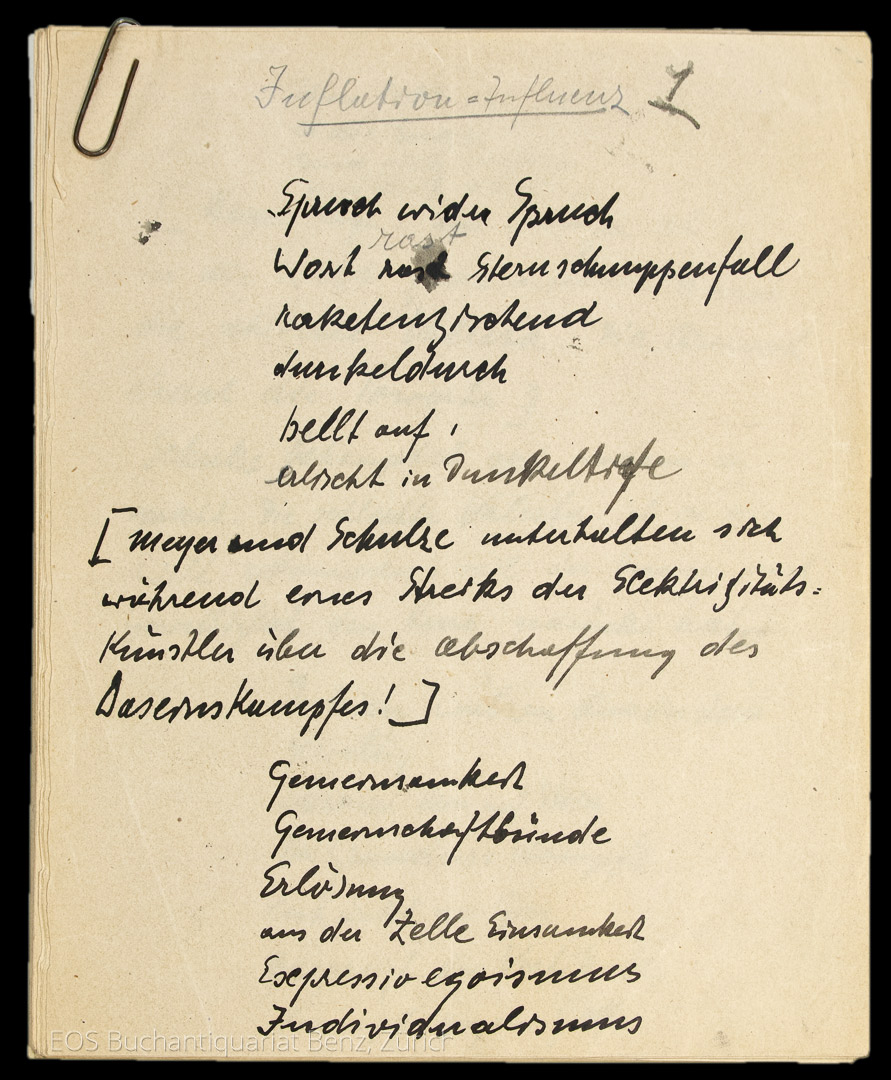 Inflation = Influenz 1
Spruch wider Spruch
rast
Wort rast Sternschnuppenfall
raketenzischend
dunkeldurch
hellt auf,
erlischt in Dunkeltiefe
[Meyer und Schulze unterhalten sich
während eines Streiks der Elektrizitäts=
Künstler über die Abschaffung des
Daseinskampfes!]
Gemeinsamkeit
Gemeinschaftbünde
Erlösung
aus der Zelle Einsamkeit
Expressivegoismus
Individualismus
EOS Buchantiquariat Benz, Zürich